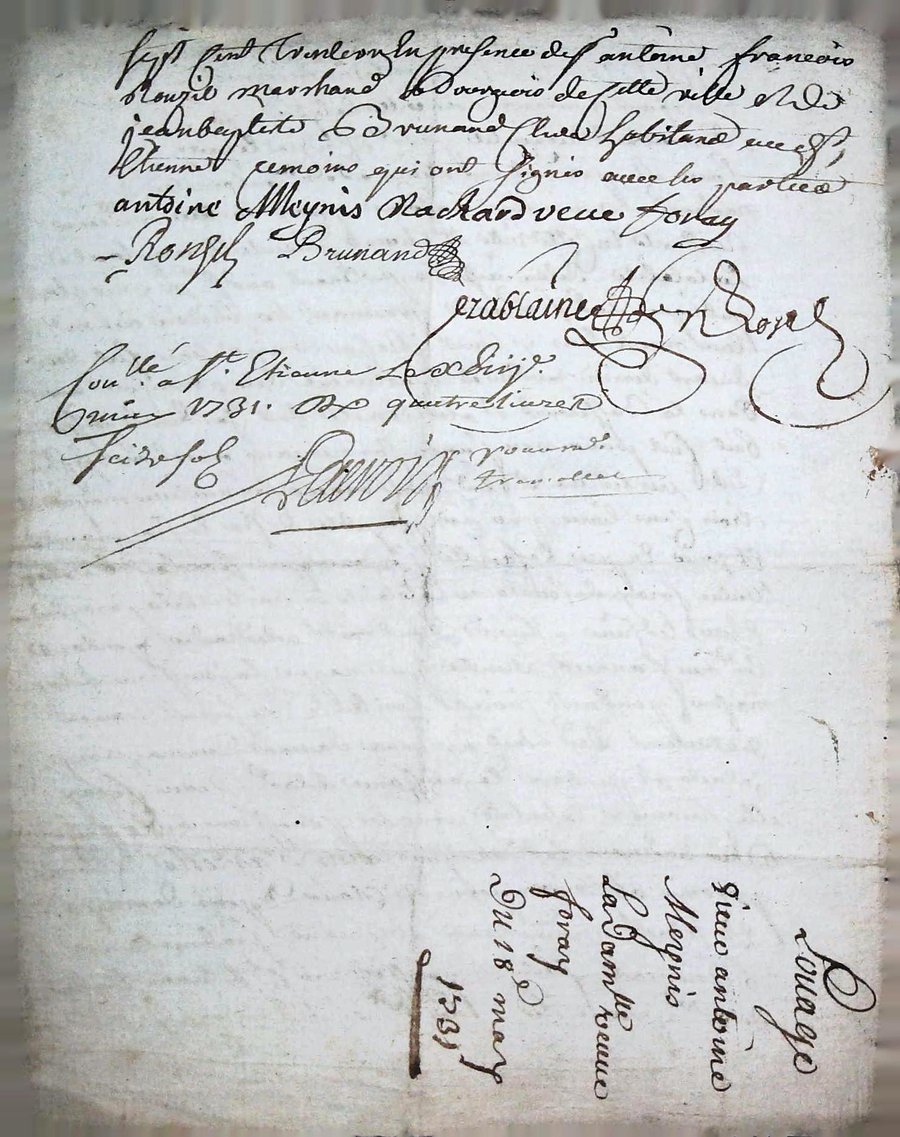 sept cent Trente un En presence de Sr antoine francois
Ronzil marchand Bourgeois de cette ville et de
jean baptiste Brunand Clerc habitant aud St
Etienne temoins qui ont signés avec les parties
antoine Meynis Rachard veuve foray
Ronzil Brunand
Conllé a St. Etienne Le
may 1731. Rx quatre livres
seize sols
Louage
Sieur antoine
Meynis
La Dam.lle veuve
foray
Du 18e may
1731